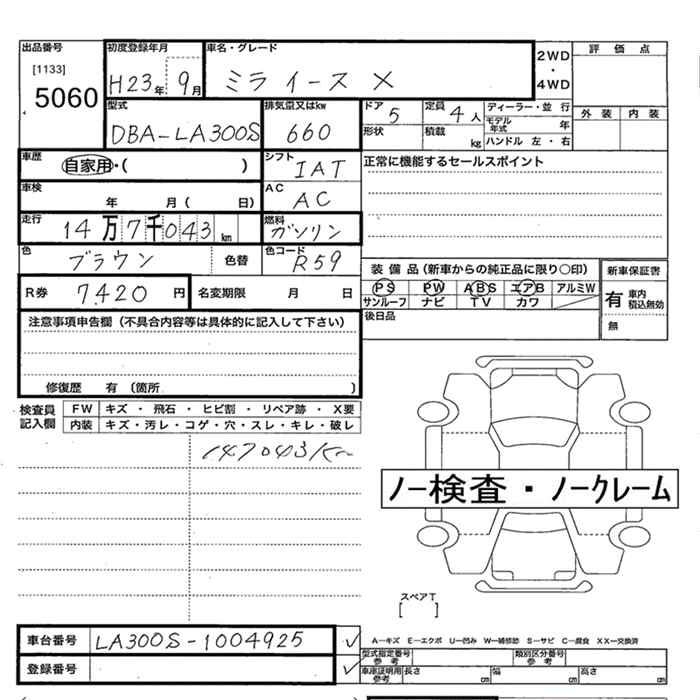 出品番号
[1133]
5060
初度登録年月
H23年 9月
車名・グレード
ミラ イース X
2WD
・
4WD
評価点
外装 内装
型式
DBA-LA300S
排気量又はkw
660
ドア 5
定員 4人
ディーラー・並行
形状
積載 kg
モデル年式 年
ハンドル 左・右
車歴
自家用・( )
シフト
IAT
正常に機能するセールスポイント
車検
年 月( 日)
AC
AC
走行
14万7千043km
燃料
ガソリン
色
ブラウン
色替
色コード
R59
装備品(新車からの純正品に限り〇印)
PS PW ABS エアB アルミW
サンルーフ ナビ TV カワ
新車保証書
有 車内 積込無効
無
R券 7,420円
名変期限 月 日
後日品
注意事項申告欄(不具合内容等は具体的に記入して下さい)
修復歴 有(箇所 )
検査員記入欄
FW キズ・飛石・ヒビ割・リペア跡・X要
内装 キズ・汚レ・コゲ・穴・スレ・キレ・破レ
147043km
ノー検査・ノークレーム
スペアT
[ ]
車台番号 LA300S-1004925
登録番号
A－キズ E－エクボ U－凹み W－補修跡 S－サビ C－腐食 XX－交換済
型式指定番号 参考
類別区分番号 参考
車庫証明用 参考 長さ cm 幅 cm 高さ cm